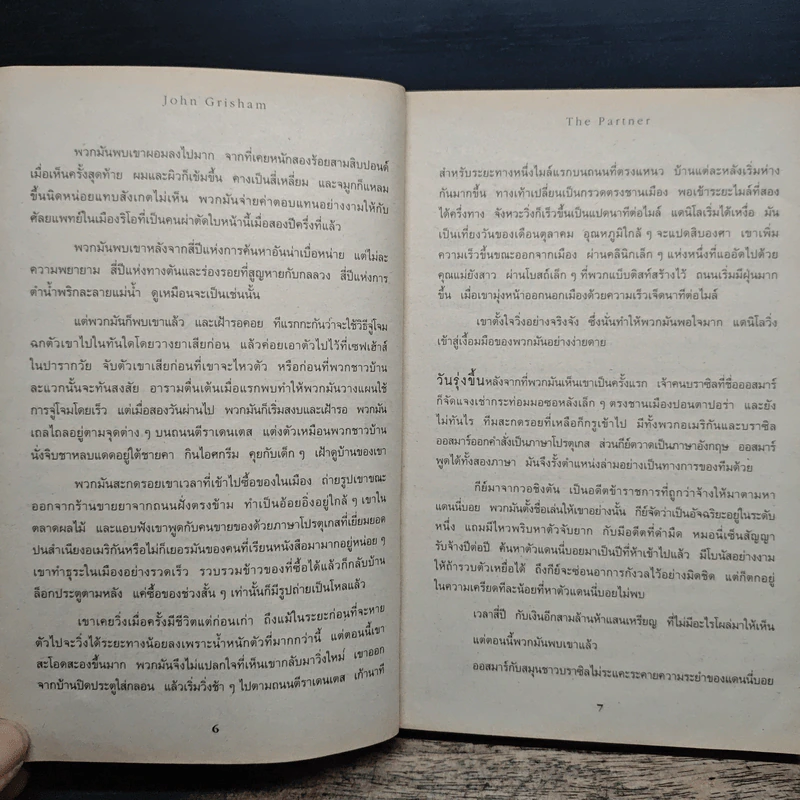 John Grisham
พวกมันพบเขาผอมลงไปมาก จากที่เคยหนักสองร้อยสามสิบปอนด์
เมื่อเห็นครั้งสุดท้าย ผมและผิวก็เข้มขึ้น คางเป็นสี่เหลี่ยม และจมูกก็แหลม
ขึ้นนิดหน่อยแทบสังเกตไม่เห็น พวกมันจ่ายค่าตอบแทนอย่างงามให้กับ
ศัลยแพทย์ในเมืองริโอที่เป็นคนผ่าตัดใบหน้านี้เมื่อสองปีครึ่งที่แล้ว
พวกมันพบเขาหลังจากสี่ปีแห่งการค้นหาอันน่าเบื่อหน่าย แต่ไม่ละ
ความพยายาม สี่ปีแห่งทางตันและร่องรอยที่สูญหายกับกลลวง สี่ปีแห่งการ
ตำน้ำพริกละลายแม่น้ำ ดูเหมือนจะเป็นเช่นนั้น
แต่พวกมันก็พบเขาแล้ว และเฝ้ารอคอย ทีแรกกะกันว่าจะใช้วิธีจู่โจม
ฉกตัวเขาไปในทันใดโดยวางยาเสียก่อน แล้วค่อยเอาตัวไปไว้ที่เซฟเฮ้าส์
ในปารากวัย จับตัวเขาเสียก่อนที่เขาจะไหวตัว หรือก่อนที่พวกชาวบ้าน
ละแวกนั้นจะทันสงสัย อารามตื่นเต้นเมื่อแรกพบทำให้พวกมันวางแผนใช้
การจู่โจมโดยเร็ว แต่เมื่อสองวันผ่านไป พวกมันก็เริ่มสงบและเฝ้ารอ พวกมัน
เถลไถลอยู่ตามจุดต่าง ๆ บนถนนตีราเดนเตส แต่งตัวเหมือนพวกชาวบ้าน
นั่งจิบชาหลบแดดอยู่ใต้ชายคา กินไอศกรีม คุยกับเด็ก ๆ เฝ้าดูบ้านของเขา
พวกมันสะกดรอยเขาเวลาที่เข้าไปซื้อของในเมือง ถ่ายรูปเขาขณะ
ออกจากร้านขายยาจากถนนฝั่งตรงข้าม ทำเป็นอ้อยอิ่งอยู่ใกล้ ๆ เขาใน
ตลาดผลไม้ และแอบฟังเขาพูดกับคนขายของด้วยภาษาโปรตุเกสที่เยี่ยมยอด
ปนสำเนียงอเมริกันหรือไม่ก็เยอรมันของคนที่เรียนหนังสือมามากอยู่หน่อย ๆ
เขาทำธุระในเมืองอย่างรวดเร็ว รวบรวมข้าวของที่ซื้อได้แล้วก็กลับบ้าน
ล็อกประตูตามหลัง แค่ซื้อของช่วงสั้น ๆ เท่านั้นก็มีรูปถ่ายเป็นโหลแล้ว
เขาเคยวิ่งเมื่อครั้งมีชีวิตแต่ก่อนเก่า ถึงแม้ในระยะก่อนที่จะหาย
ตัวไปจะวิ่งได้ระยะทางน้อยลงเพราะน้ำหนักตัวที่มากกว่านี้ แต่ตอนนี้เขา
สะโอดสะองขึ้นมาก พวกมันจึงไม่แปลกใจที่เห็นเขากลับมาวิ่งใหม่ เขาออก
จากบ้านปิดประตูใส่กลอน แล้วเริ่มวิ่งช้า ๆ ไปตามถนนตีราเดนเตส เก้านาที
6
The Partner
สำหรับระยะทางหนึ่งไมล์แรกบนถนนที่ตรงแหนว บ้านแต่ละหลังเริ่มห่าง
กันมากขึ้น ทางเท้าเปลี่ยนเป็นกรวดตรงชานเมือง พอเข้าระยะไมล์ที่สอง
ได้ครึ่งทาง จังหวะวิ่งก็เร็วขึ้นเป็นแปดนาทีต่อไมล์ แดนิโลเริ่มได้เหงื่อ มัน
เป็นเที่ยงวันของเดือนตุลาคม อุณหภูมิใกล้ ๆ จะแปดสิบองศา เขาเพิ่ม
ความเร็วขึ้นขณะออกจากเมือง ผ่านคลินิกเล็ก ๆ แห่งหนึ่งที่แออัดไปด้วย
คุณแม่ยังสาว ผ่านโบสถ์เล็ก ๆ ที่พวกแบ็บติสท์สร้างไว้ ถนนเริ่มมีฝุ่นมาก
ขึ้น เมื่อเขามุ่งหน้าออกนอกเมืองด้วยความเร็วเจ็ดนาทีต่อไมล์
เขาตั้งใจวิ่งอย่างจริงจัง ซึ่งนั่นทำให้พวกมันพอใจมาก แดนิโลวิ่ง
เข้าสู่เงื้อมมือของพวกมันอย่างง่ายดาย
วันรุ่งขึ้นหลังจากที่พวกมันเห็นเขาเป็นครั้งแรก เจ้าคนบราซิลที่ชื่อออสมาร์
ก็จัดแจงเช่ากระท่อมมอซอหลังเล็ก ๆ ตรงชานเมืองปอนตาปอร่า และยัง
ไม่ทันไร ทีมสะกดรอยที่เหลือก็กรูเข้าไป มีทั้งพวกอเมริกันและบราซิล
ออสมาร์ออกคำสั่งเป็นภาษาโปรตุเกส ส่วนกีย์ตวาดเป็นภาษาอังกฤษ ออสมาร์
พูดได้ทั้งสองภาษา มันจึงรั้งตำแหน่งล่ามอย่างเป็นทางการของทีมด้วย
กีย์มาจากวอชิงตัน เป็นอดีตข้าราชการที่ถูกว่าจ้างให้มาตามหา
แดนนี่บอย พวกมันตั้งชื่อเล่นให้เขาอย่างนั้น กีย์จัดว่าเป็นอัจฉริยะอยู่ในระดับ
หนึ่ง แถมมีไหวพริบหาตัวจับยาก กับมีอดีตที่ดำมืด หมอนี่เซ็นสัญญา
รับจ้างปีต่อปี ค้นหาตัวแดนนี่บอยมาเป็นปีที่ห้าเข้าไปแล้ว มีโบนัสอย่างงาม
ให้ถ้ารวบตัวเหยื่อได้ ถึงกีย์จะซ่อนอาการกังวลไว้อย่างมิดชิด แต่ก็ตกอยู่
ในความเครียดทีละน้อยที่หาตัวแดนนี่บอยไม่พบ
เวลาสี่ปี กับเงินอีกสามล้านห้าแสนเหรียญ ที่ไม่มีอะไรโผล่มาให้เห็น
แต่ตอนนี้พวกมันพบเขาแล้ว
ออสมาร์กับสมุนชาวบราซิลไม่ระแคะระคายความระยำของแดนนี่บอย
7